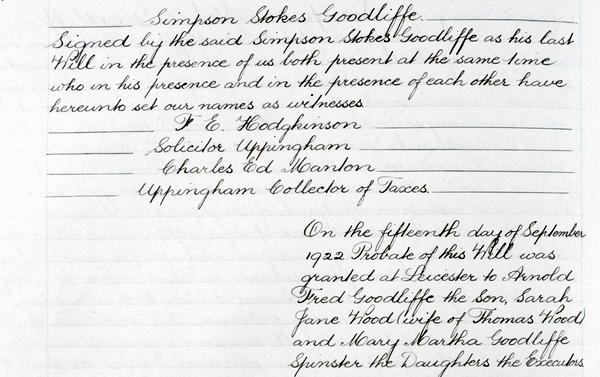 Simpson Stokes Goodliffe.
Signed by the said Simpson Stokes Goodliffe as his last
Will in the presence of us both present at the same time
who in his presence and in the presence of each other have
hereunto set our names as witnesses
F. E. Hodgkinson
Solicitor Uppingham
Charles Ed Manton
Uppingham Collector of Taxes.
On the fifteenth day of September
1922 Probate of this Will was
granted at Leicester to Arnold
Fred Goodliffe the Son, Sarah
Jane Wood (wife of Thomas Wood)
and Mary Martha Goodliffe
Spinster the Daughters the Executors